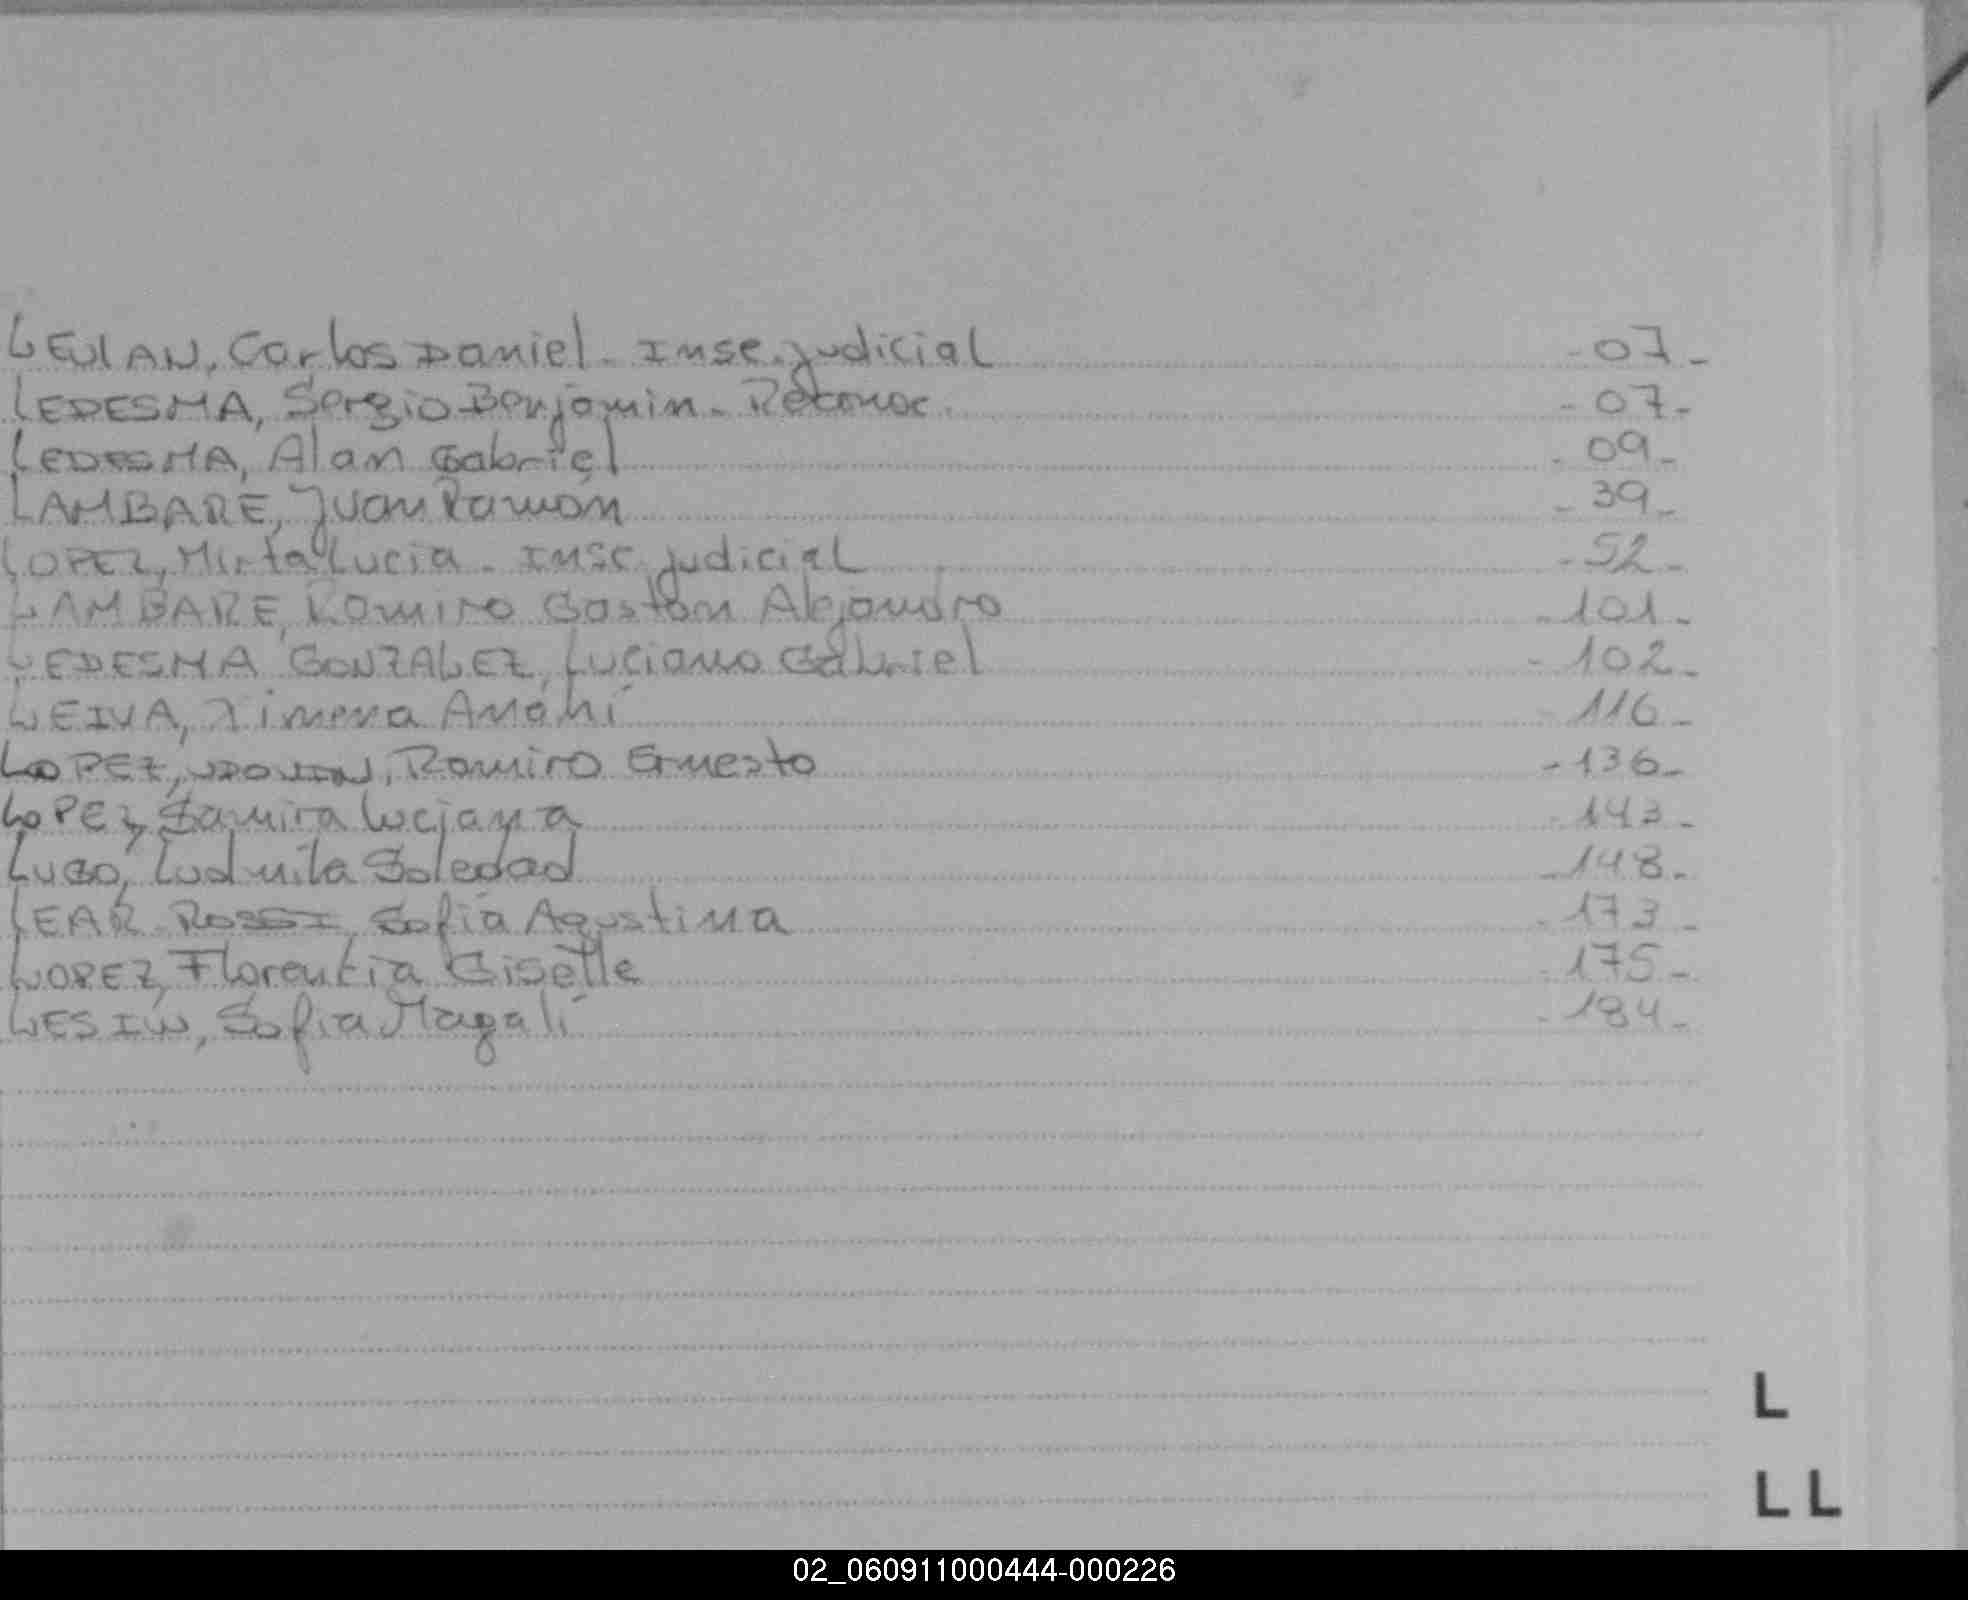 LEULAN, Carlos Daniel - Insc. judicial - 07 -
LEDESMA, Sergio Benjamin - Reconoc. - 07 -
LEDESMA, Alan Gabriel - 09 -
LAMBARE, Juan Ramón - 39 -
LOPEZ, Mirta Lucia - Insc. judicial - 52 -
LAMBARE, Ramiro Gaston Alejandro - 101 -
LEDESMA GONZALEZ, Luciano Gabriel - 102 -
LEIVA, Ximena Anahí - 116 -
LOPEZ, Ramiro Ernesto - 136 -
LOPEZ, Samira Luciana - 143 -
LUGO, Ludmila Soledad - 148 -
LEAR ROSSI, Sofia Agustina - 173 -
LOPEZ, Florentia Giselle - 175 -
LESIW, Sofia Magalí - 184 -
L
LL
02_060911000444-000226